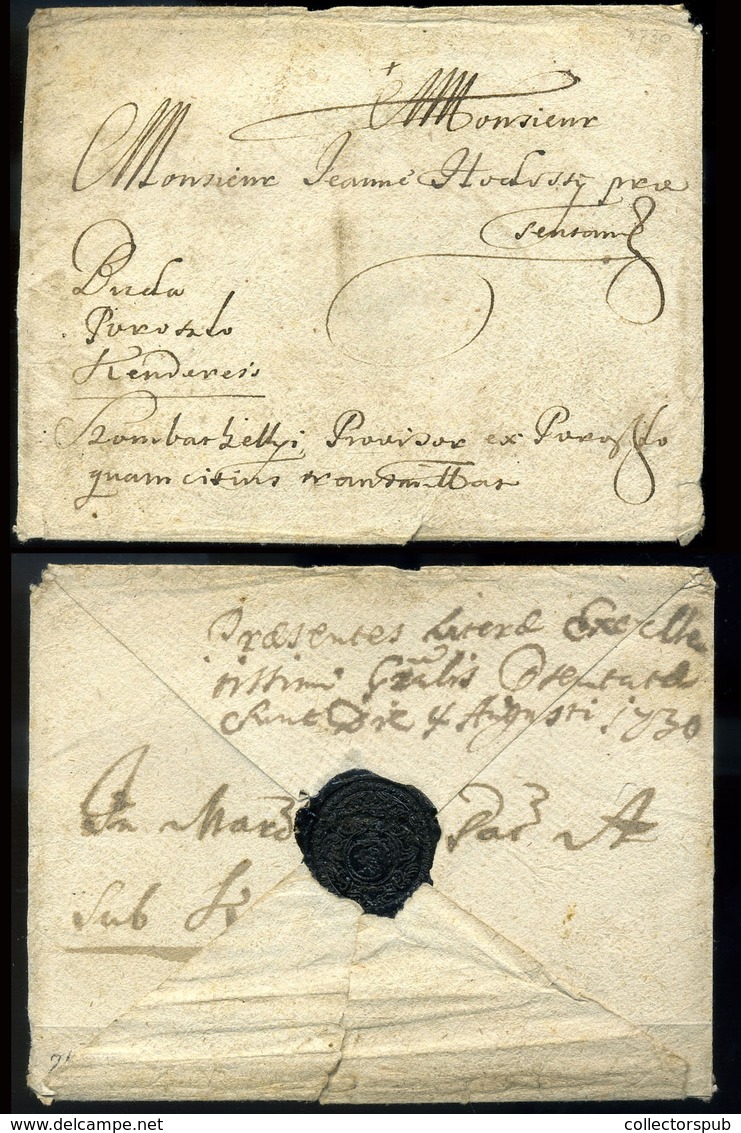 1730
Monsieur
Monsieur Jeanne Hodossy præ
sentam
Buda
Poroszlo
Kenderess
Szombathellyi Provisor ex Poroszlo
quam citius transmittat
Præsentes literæ Excelle
tissimi Gr̃alis Præsentatæ
Sunt Die 4 Augusti 1730
In Mar
Pac A
Sub
collectorspub